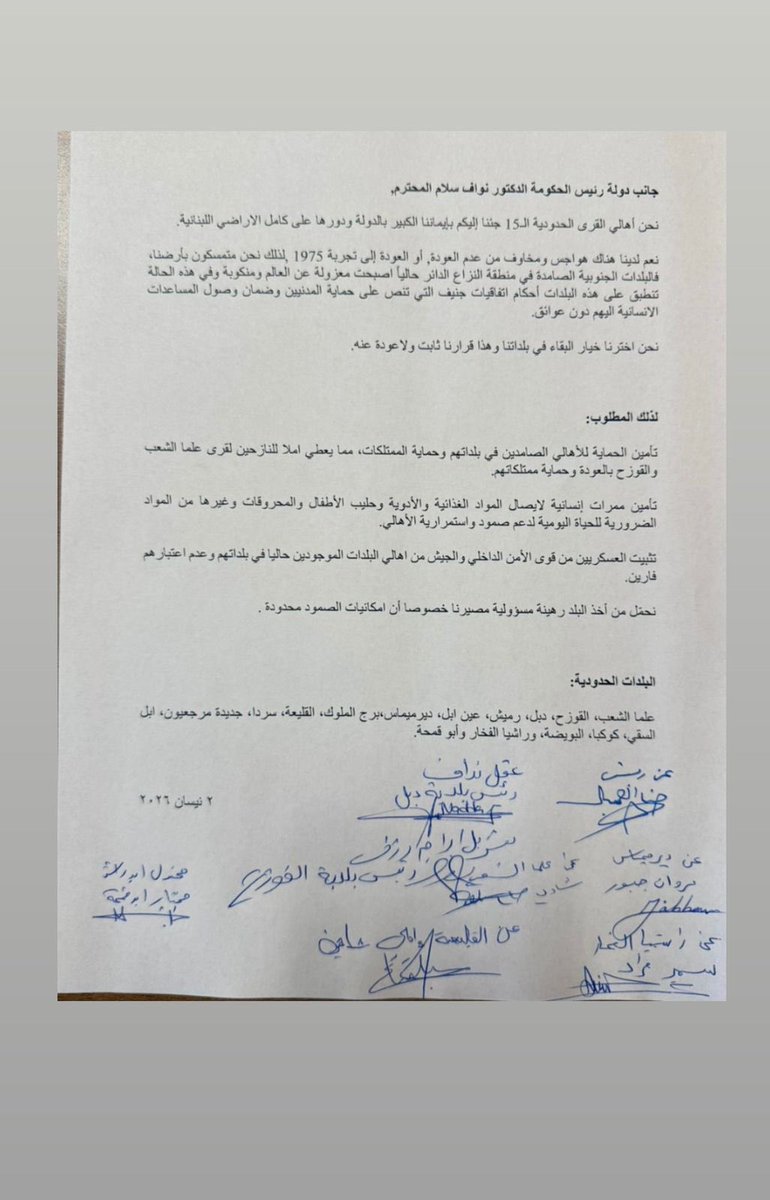 جانب دولة رئيس الحكومة الدكتور نواف سلام المحترم,
نحن أهالي القرى الحدودية الـ15 جئنا إليكم بإيماننا الكبير بالدولة ودورها على كامل الاراضي اللبنانية.
نعم لدينا هناك هواجس ومخاوف من عدم العودة, أو العودة إلى تجربة 1975 ,لذلك نحن متمسكون بأرضنا،
فالبلدات الجنوبية الصامدة في منطقة النزاع الدائر حالياً اصبحت معزولة عن العالم ومنكوبة وفي هذه الحالة
تنطبق على هذه البلدات أحكام اتفاقيات جنيف التي تنص على حماية المدنيين وضمان وصول المساعدات
الانسانية اليهم دون عوائق.
نحن اخترنا خيار البقاء في بلداتنا وهذا قرارنا ثابت ولاعودة عنه.
لذلك المطلوب:
تأمين الحماية للأهالي الصامدين في بلداتهم وحماية الممتلكات، مما يعطي املا للنازحين لقرى علما الشعب
والقوزح بالعودة وحماية ممتلكاتهم.
تأمين ممرات إنسانية لايصال المواد الغذائية والأدوية وحليب الأطفال والمحروقات وغيرها من المواد
الضرورية للحياة اليومية لدعم صمود واستمرارية الأهالي.
تثبيت العسكريين من قوى الأمن الداخلي والجيش من اهالي البلدات الموجودين حاليا في بلداتهم وعدم اعتبارهم
فارين.
نحمّل من أخذ البلد رهينة مسؤولية مصيرنا خصوصا أن امكانيات الصمود محدودة .
البلدات الحدودية:
علما الشعب، القوزح، دبل، رميش، عين ابل، ديرميماس،برج الملوك، القليعة، سردا، جديدة مرجعيون، ابل
السقي، كوكبا، البويضة، وراشيا الفخار وأبو قمحة.
٢ نيسان ٢٠٢٦
عن رميش
عقل نداف
رئيس بلدية دبل
عن ديرميماس
مروان جبور
Jabbour
عن علما الشعب
شادي
رئيس بلدية القوزح
عن راشيا الفخار
سمير مراد
عن القليعة
مختار ابو قمحة